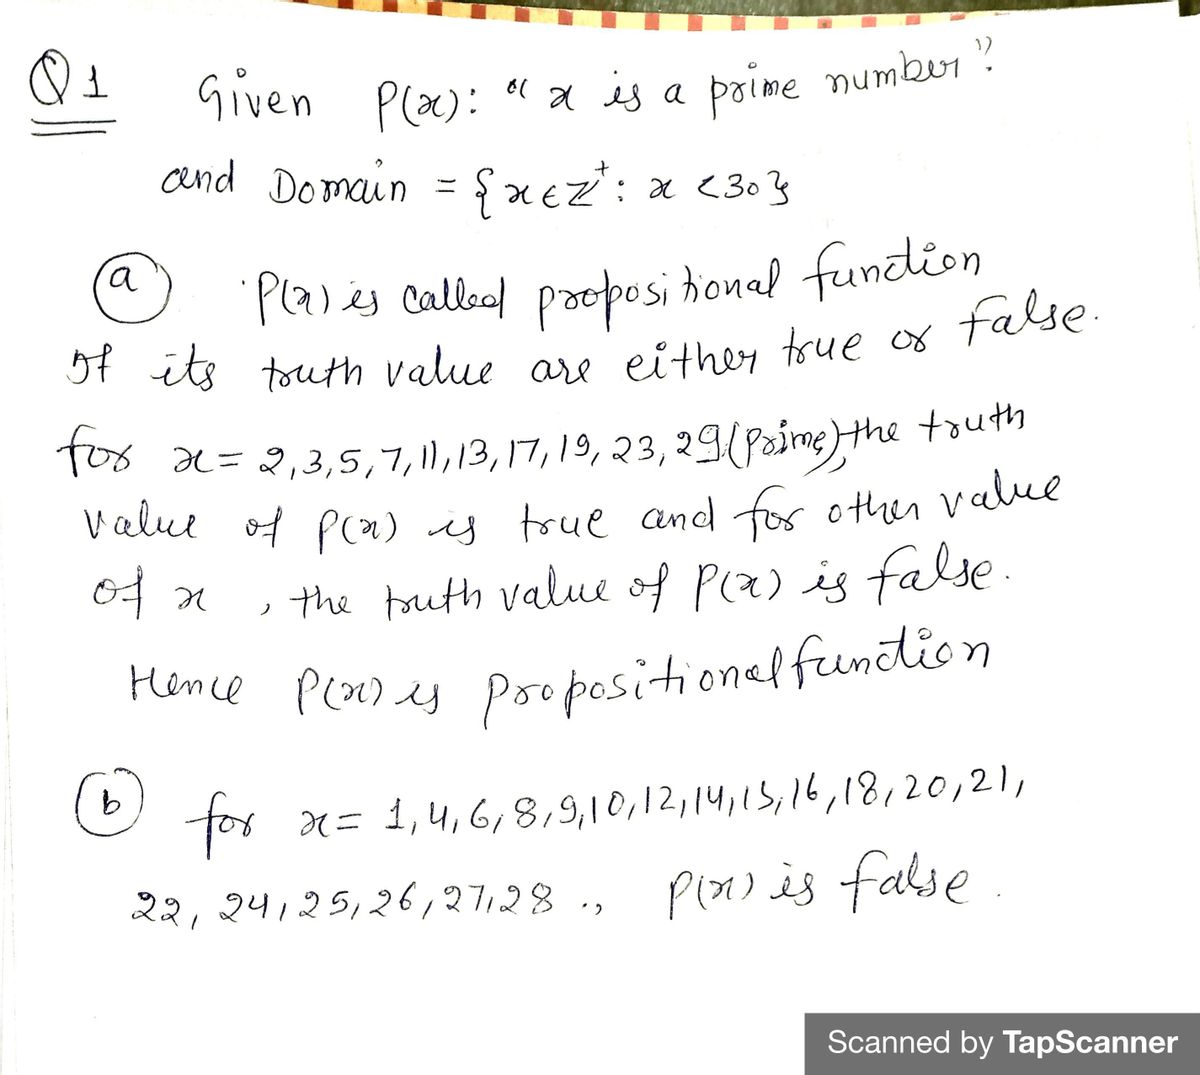 Q1 Given P(x): "x is a prime number"
and Domain = {x∈Z⁺: x <30}
(a) P(x) is called propositional function
If its truth value are either true or false.
for x= 2,3,5,7,11,13,17,19,23,29(Prime), the truth
value of P(x) is true and for other value
of x , the truth value of P(x) is false.
Hence P(x) is propositional function
(b) for x= 1,4,6,8,9,10,12,14,15,16,18,20,21,
22, 24,25,26,27,28 ., P(x) is false.
Scanned by TapScanner